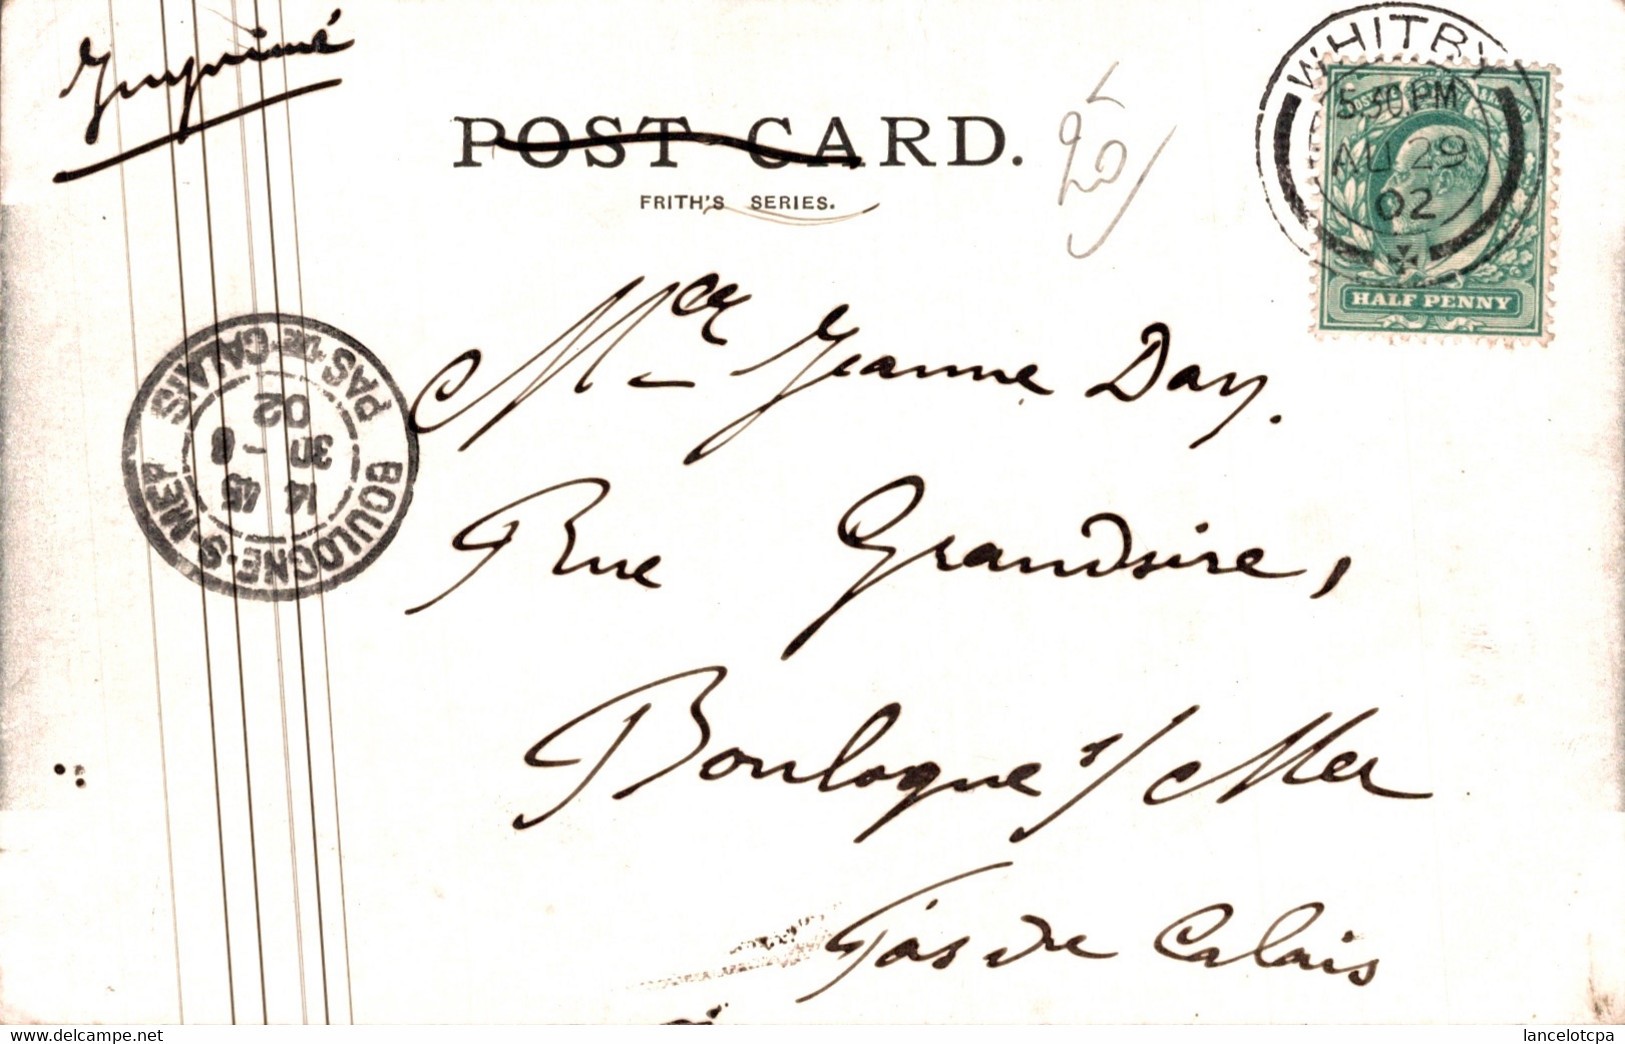 Imprimé
POST CARD.
FRITH'S SERIES.
WHITBY
5.30 PM
AU 29
02
HALF PENNY
Mlle Jeanne Day.
Rue Grandsire,
Boulogne s/Mer
Pas de Calais
BOULOGNE-S-MER
PAS-DE-CALAIS
14 45
30 - 8
02
lancelotcpa